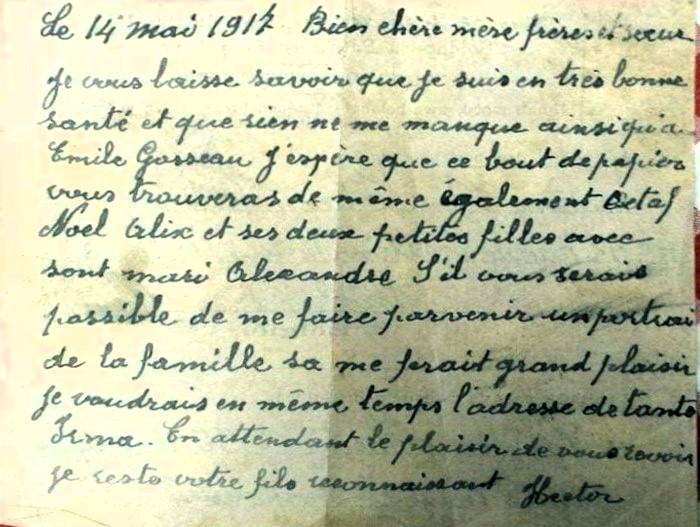 Le 14 mai 1917 Bien chère mère frères et sœur
Je vous laisse savoir que je suis en très bonne
santé et que rien ne me manque ainsi qu'a
Emile Gosseau J'espère que ce bout de papier
vous trouveras de même également Octaf
Noel Alix et ses deux petites filles avec
sont mari Alexandre S'il vous serais
possible de me faire parvenir un portrai
de la famille sa me ferait grand plaisir
Je voudrais en même temps l'adresse de tante
Irma. En attendant le plaisir de vous revoir
je reste votre fils reconnaissant Hector